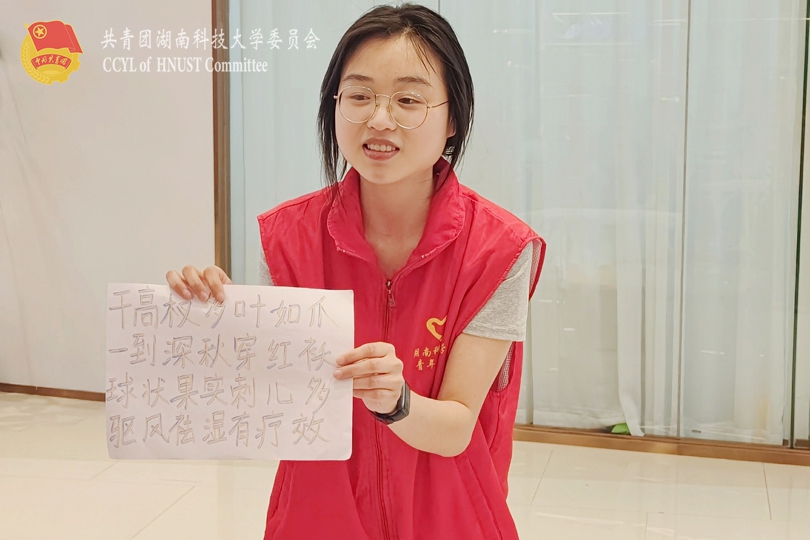 共青团湖南科技大学委员会
CCYL of HNUST Committee
中国共青团
干高杈多叶如爪
一到深秋穿红袄
球状果实刺儿多
驱风祛湿有疗效
湖南科
青年